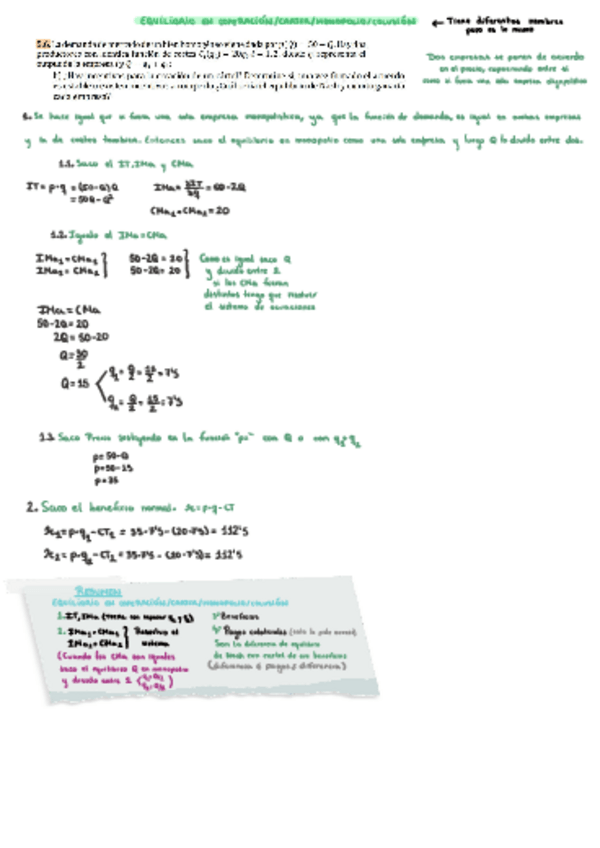 EQUILIBRIO EN COOPERACIÓN/CARTER/MONOPOLIO/COLUSIÓN ← Tiene diferentes nombres
pero es lo mismo
5.6. La demanda de mercado de un bien homogéneo viene dada por p(Q) = 50 − Q. Hay dos
productores con idéntica función de costes
output de la empresa
b) ¿Hay incentivos para la creación de un cártel? Determine si, una vez formado el acuerdo
Dos empresas se ponen de acuerdo
en el precio, cooperando entre si
como si fuera una sola empresa
1. Se hace igual que si fuera una sola empresa monopolística, ya que la función de demanda, es igual en ambas empresas
y la de costes también. Entonces saco el equilibrio en monopolio como una sola empresa y luego Q lo divido entre dos.
1.1. Saco el IT, IMa y CMa
IT = p·q = (50-Q)Q
= 50Q - Q²
IMa = ∂IT/∂Q = 50-2Q
CMa₁ = CMa₂ = 20
1.2. Igualo el IMa = CMa
IMa₁ = CMa₁ } 50-2Q = 20 }
IMa₂ = CMa₂ } 50-2Q = 20 }
Como es igual saco Q
y divido entre 2
si los CMa fueran
distintos tengo que resolver
el sistema de ecuaciones
IMa = CMa
50-2Q = 20
2Q = 50-20
Q = 30/2
Q = 15
q₁ = Q/2 = 15/2 = 7'5
q₂ = Q/2 = 15/2 = 7'5
1.3. Saco Precio sustituyendo en la función "p=" con Q o con q₁+q₂
p = 50-Q
p = 50-15
p = 35
2. Saco el beneficio normal. π = p·q - CT
π₁ = p·q₁ - CT₁ = 35·7'5 - (20·7'5) = 112'5
π₂ = p·q₂ - CT₂ = 35·7'5 - (20·7'5) = 112'5
RESUMEN
EQUILIBRIO EN COOPERACIÓN/CARTER/MONOPOLIO/COLUSIÓN
1. IT, IMa
2. IMa₁ = CMa₁ } Resuelvo el
IMa₂ = CMa₂ } sistema
(Cuando los CMa son iguales
saco el equilibrio Q en monopolio
y divido entre 2 (q₁=Q/2 q₂=Q/2))
3º Beneficios
4º Pagos colaterales
Sera la diferencia de equilibrio
de Nash con cartel de los beneficios
(diferencia ó pagos = diferencia)